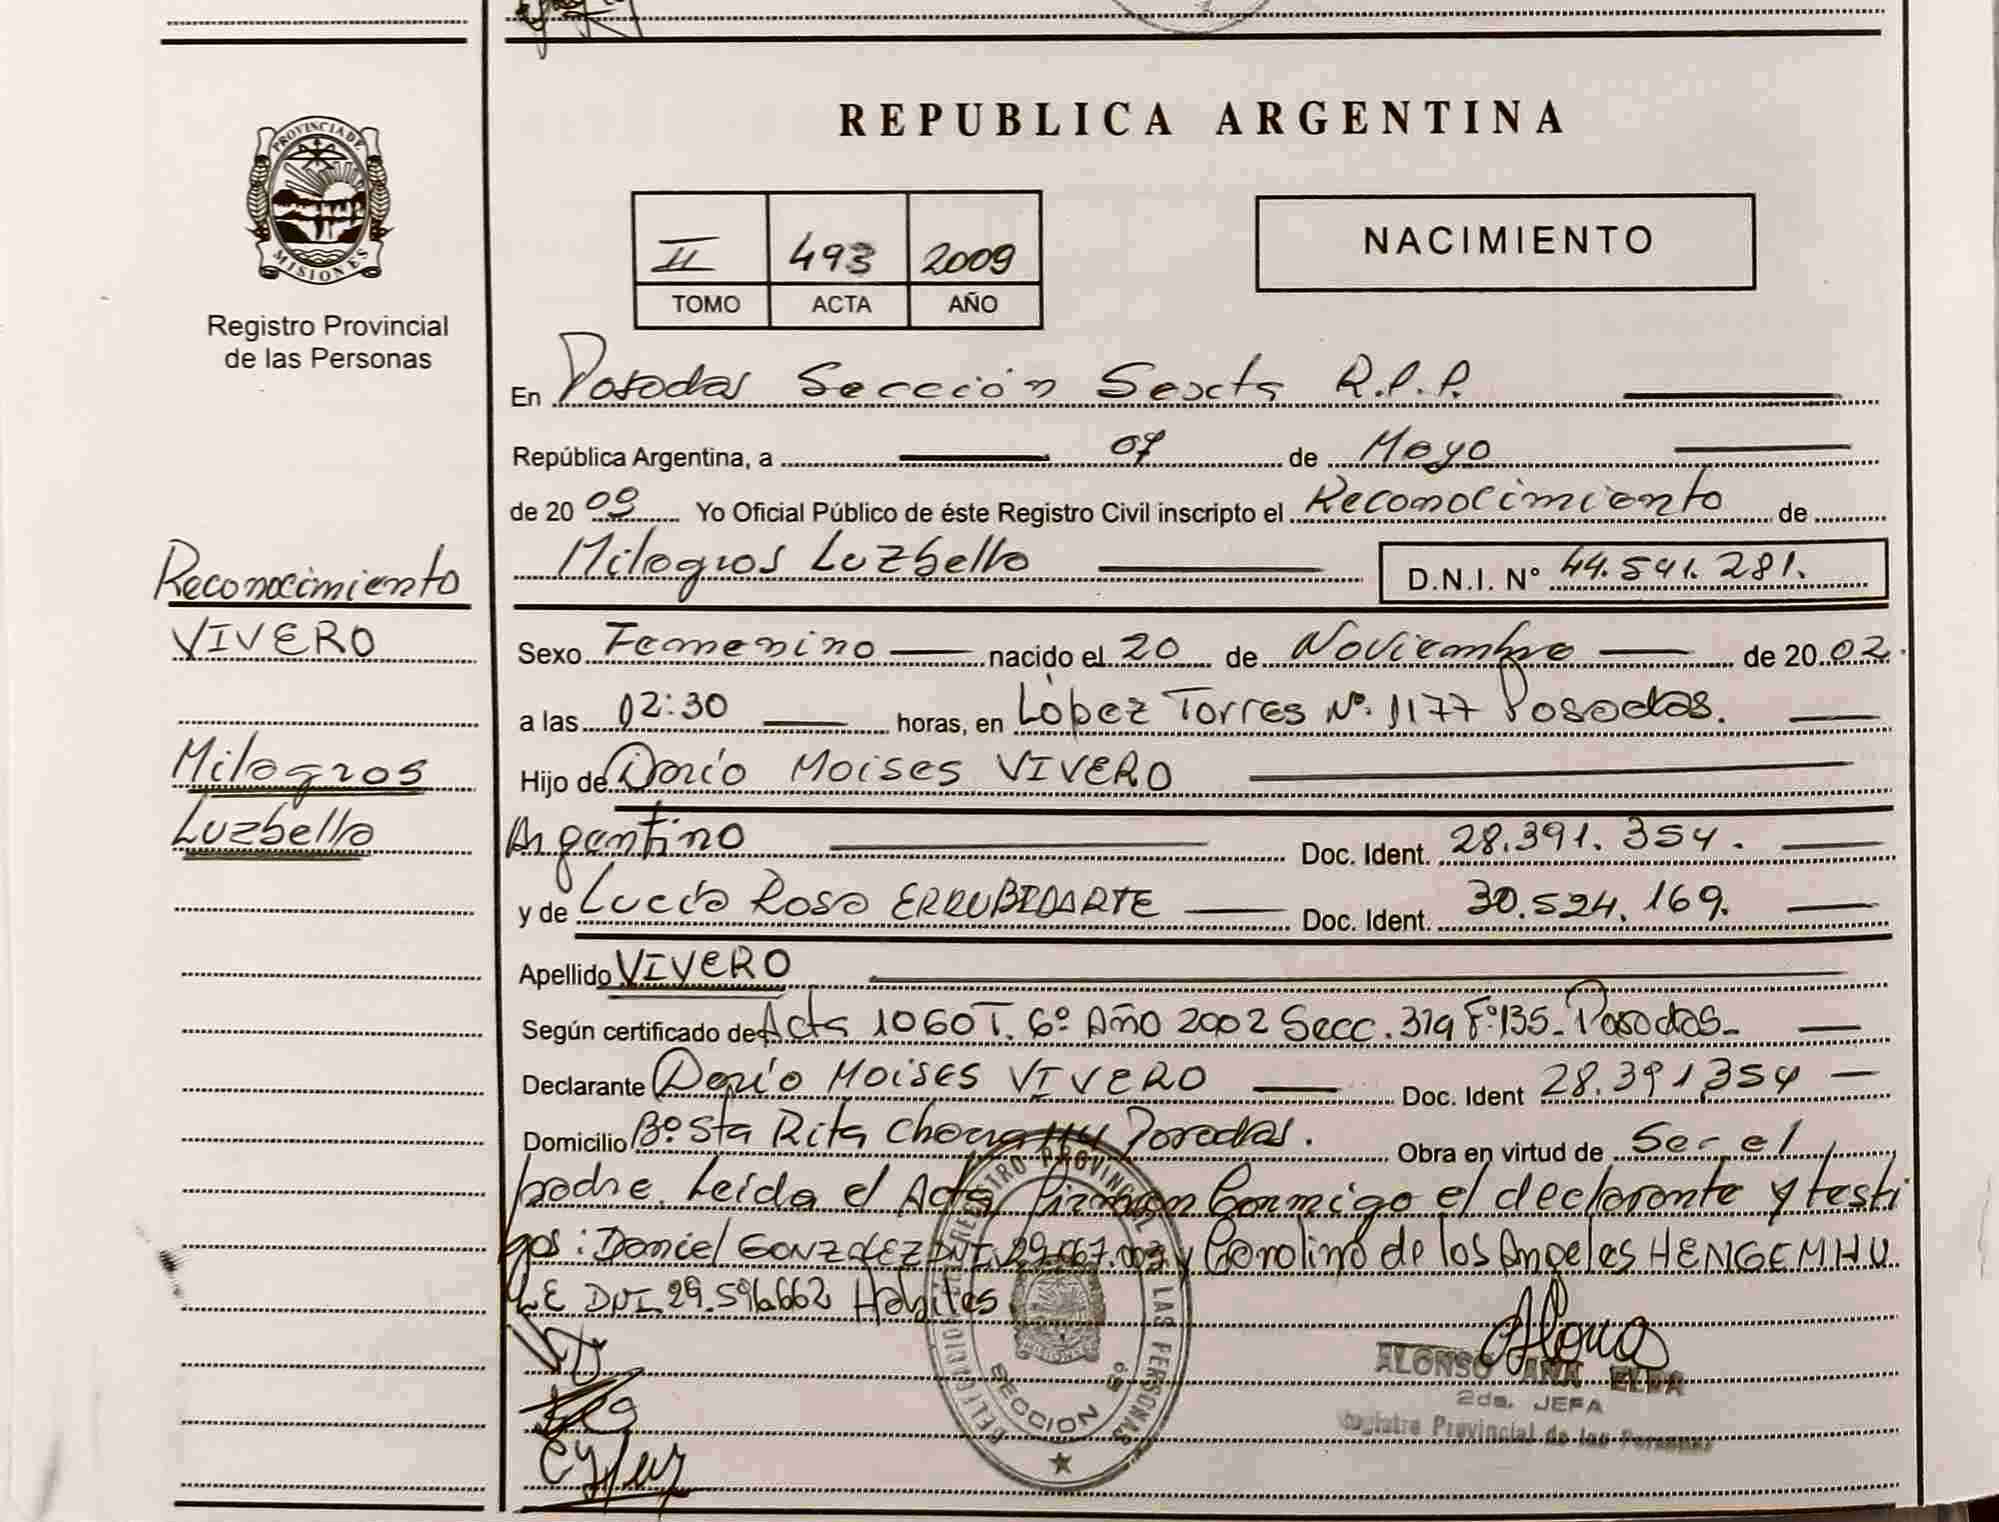 PROVINCIA DE
MISIONES
Registro Provincial
de las Personas
Reconocimiento
VIVERO
Milagros
Luzbella
REPUBLICA ARGENTINA
II 493 2009
TOMO ACTA AÑO
NACIMIENTO
En Posadas Sección Sexta R.P.P.
República Argentina, a 07 de Mayo
de 2009 Yo Oficial Público de éste Registro Civil inscripto el Reconocimiento de
Milagros Luzbella D.N.I. N° 44.541.281.
Sexo Femenino nacido el 20 de Noviembre de 2002.
a las 02:30 horas, en López Torres N°. 1177 Posadas.
Hijo de Darío Moises VIVERO
Argentino Doc. Ident. 28.391.354.
y de Lucía Rosa ERRUBIDARTE Doc. Ident. 30.524.169.
Apellido VIVERO
Según certificado de Acta 1060 T. 6º Año 2002 Secc. 3ra Fº 135- Posadas-
Declarante Darío Moises VIVERO Doc. Ident 28.391354
Domicilio Bº Sta Rita Posadas. Obra en virtud de Ser el
padre. Leída el Acta Firman Conmigo el declarante y testi
gos: Daniel GONZALEZ DNI. y Carolina de los Angeles HENGEMHU
LE DNI. 29.596.662 Habiles
REGISTRO PROVINCIAL DE LAS PERSONAS
SECCION 6ª
MISIONES
ALONSO ANA ELBA
2da. JEFA
Registro Provincial de las Personas